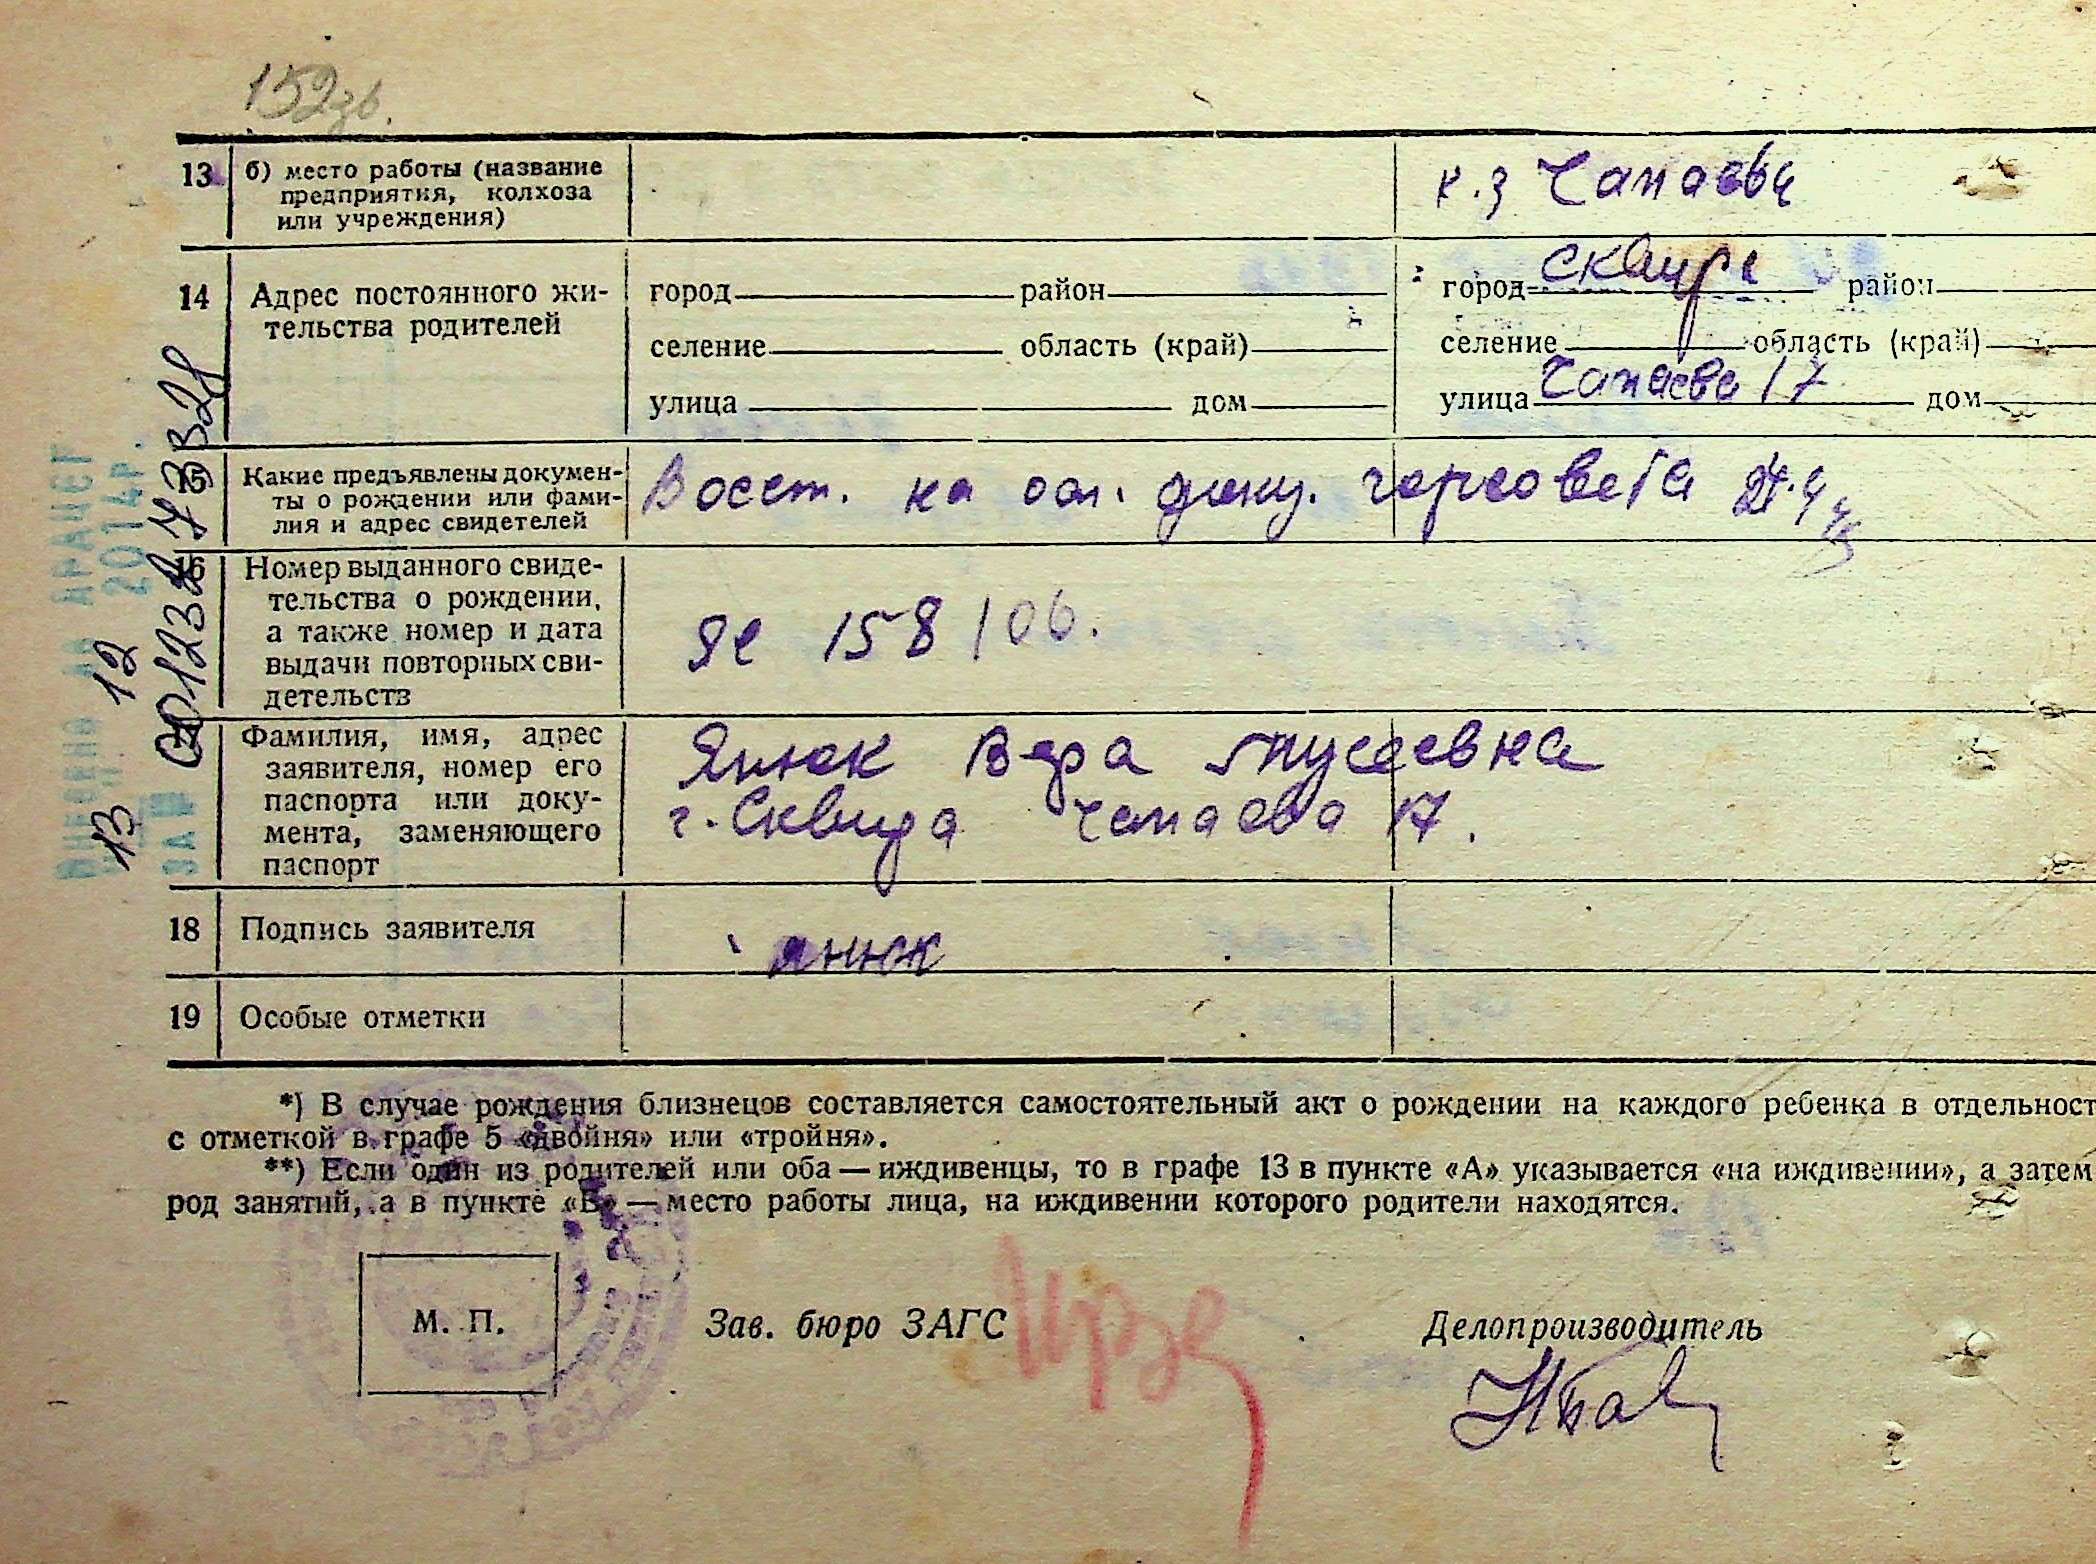 152зв.
13 б) место работы (название
предприятия, колхоза
или учреждения)
к.з Чапаева
14 Адрес постоянного жи-
тельства родителей
город район
селение область (край)
улица дом
город Сквира район
селение область (край)
улица Чапаева 17 дом
Какие предъявлены докумен-
ты о рождении или фами-
лия и адрес свидетелей
Восст. на осн. докум. горсовета
16 Номер выданного свиде-
тельства о рождении,
а также номер и дата
выдачи повторных сви-
детельств
158106.
Фамилия, имя, адрес
заявителя, номер его
паспорта или доку-
мента, заменяющего
паспорт
Янюк Вера
г. Сквира Чапаева 17.
18 Подпись заявителя
янюк
19 Особые отметки
*) В случае рождения близнецов составляется самостоятельный акт о рождении на каждого ребенка в отдельност
с отметкой в графе 5 «двойня» или «тройня».
**) Если один из родителей или оба — иждивенцы, то в графе 13 в пункте «А» указывается «на иждивении», а затем
род занятий, а в пункте «Б» — место работы лица, на иждивении которого родители находятся.
М. П.
Зав. бюро ЗАГС
Делопроизводитель
2014р.
13 12